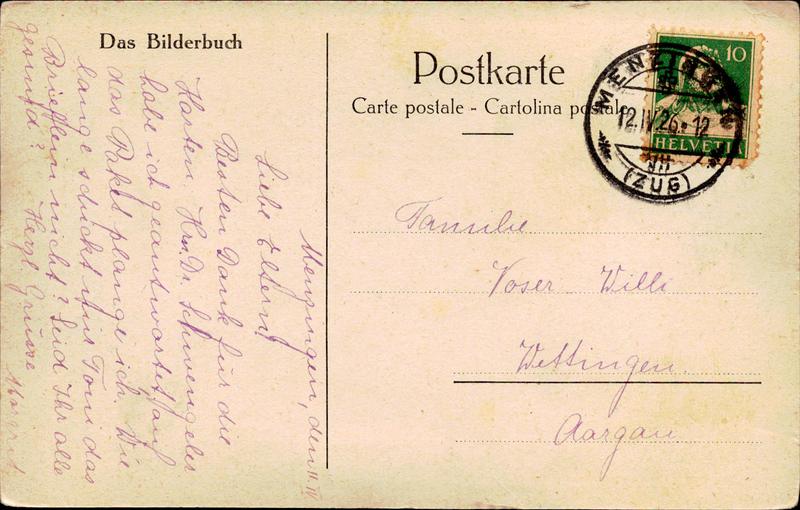 Das Bilderbuch
Postkarte
Carte postale - Cartolina postale
10
HELVETIA
MENZINGEN
12.IV.26.-12
VII
(ZUG)
Familie
Voser Willi
Wettingen
Aargau
Menzingen, den 11. IV
Liebe Eltern!
Besten Dank für die
Karten. Hrn. Dr. Schwengeler
habe ich geantwortet, auf
das Paket plange ich. Wie
lange schickt mir Toni das
Brieflein nicht? Seid Ihr alle
gesund? Herzl. Grüsse